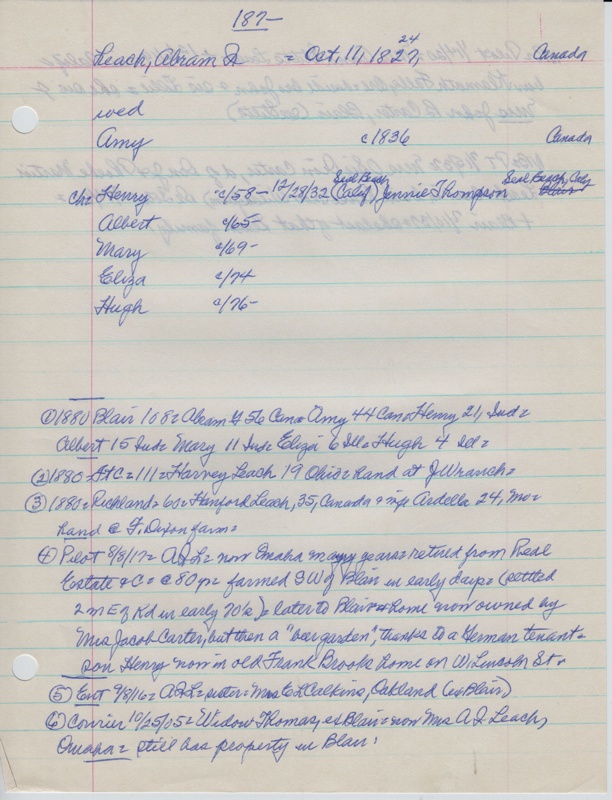 187-
Leach, Abram = Oct. 11, 1827, 24 Canada
wed
Amy c1836 Canada
Ch= Henry c/58- 12/28/32 Seal Beach (Calif) Jennie Thompson Seal Beach, Calif Blair
Albert c/65-
Mary c/69-
Eliza c/74
Hugh c/76-
① 1880 Blair 108= Abram 56 Can= Amy 44 Can= Henry 21, Ind=
Albert 15 Ind= Mary 11 Ind= Eliza 6 Ill= Hugh 4 Ill=
② 1880= 111= Harvey Leach 19 Ohio= hand at ranch=
③ 1880= Richland= 60= Hanford Leach, 35, Canada & wife Ardella 24, Mo=
hand @ F. Dixon farm=
④ Pilot 8/8/17= now Omaha many years= retired from Real
Estate &C= @ 80 yr= farmed SW of Blair in early days= (settled
2 m E of Kd in early 70's)= later to Blair= home now owned by
Mrs Jacob Carter, but then a "beer garden", thanks to a German tenant=
son Henry now in old Frank Brooks home on W. Lincoln St=
⑤ Ent 9/8/16= sister= Mrs E L Calkins, Oakland (ex Blair)
⑥ Courier 10/25/05= Widow Thomas, ex Blair= now Mrs Leach,
Omaha= still has property in Blair=